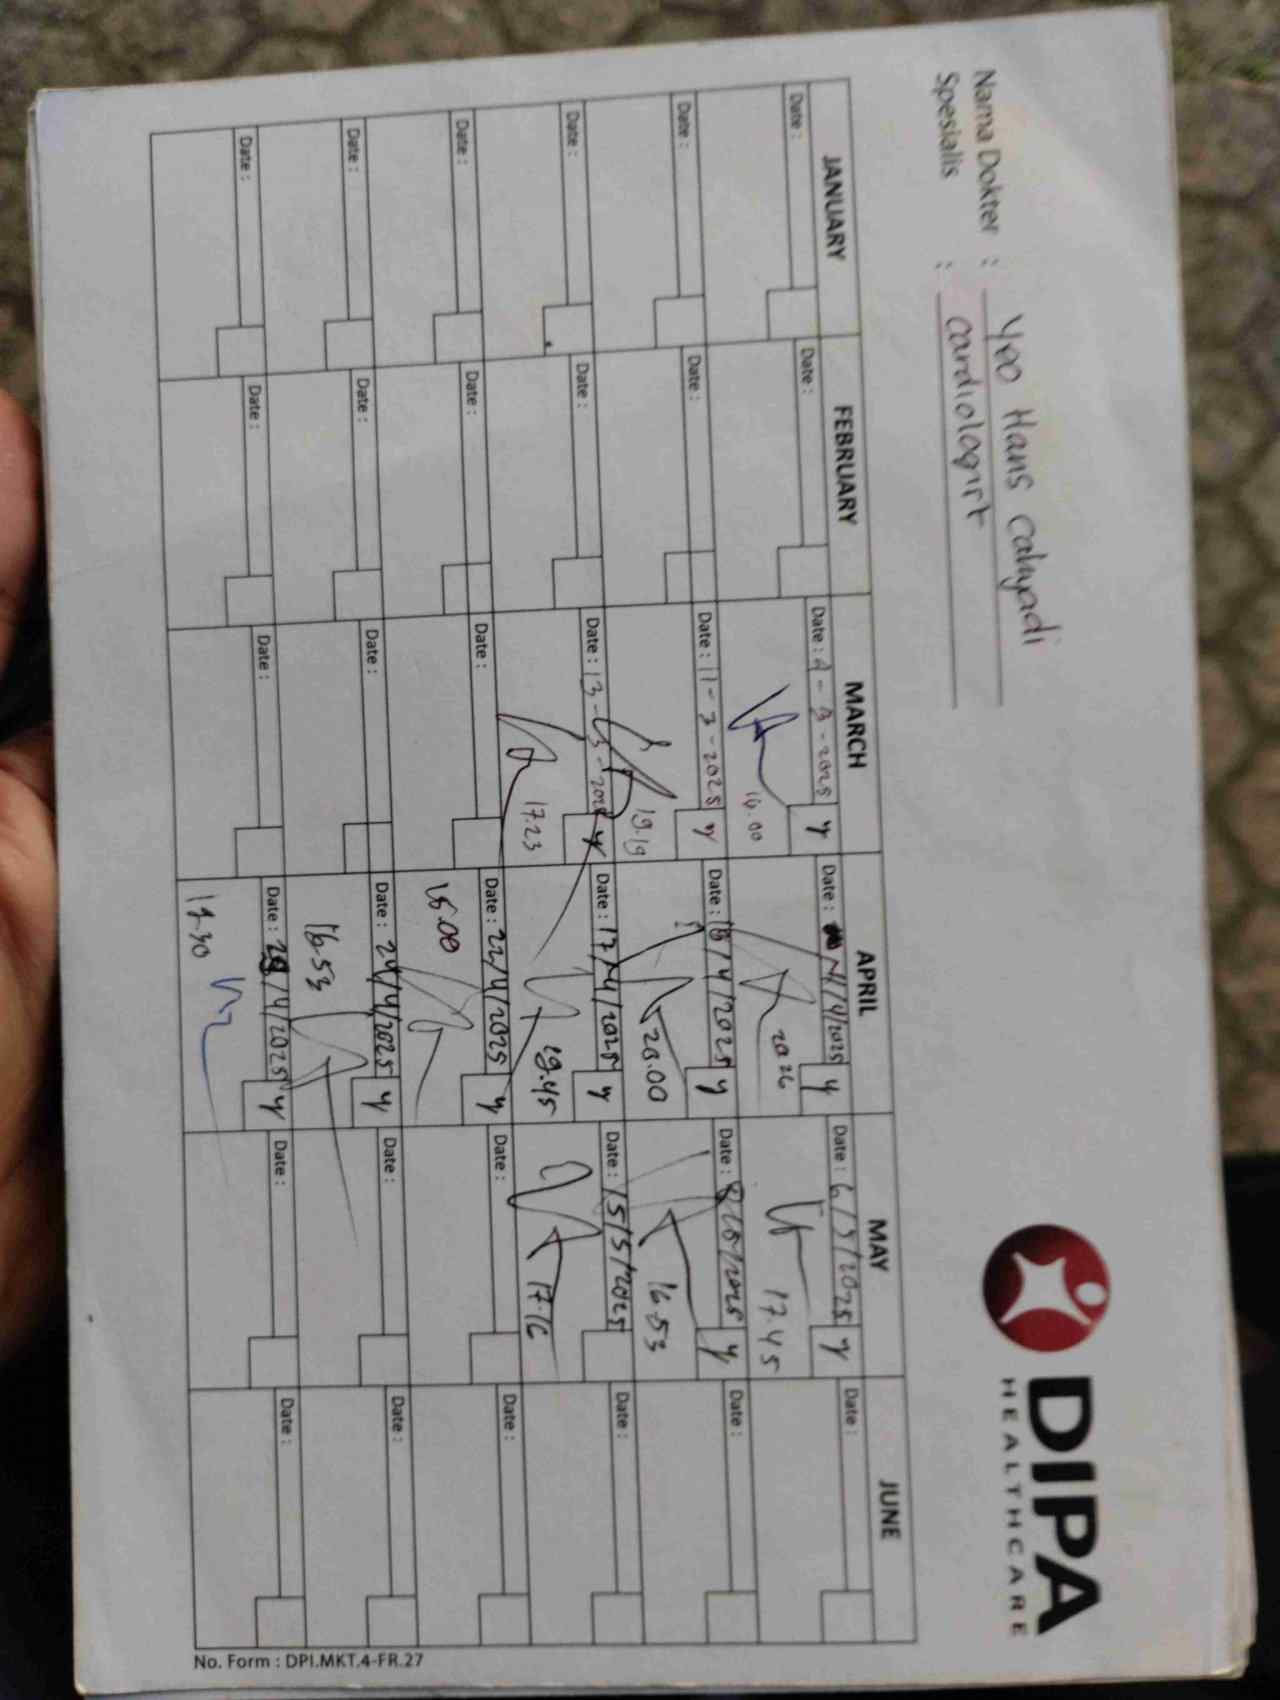 Nama Dokter : Yoo Hans cahyadi
Spesialis : cardiologist
DIPA
HEALTHCARE
JANUARY FEBRUARY MARCH APRIL MAY JUNE
Date : Date : Date : 4-3-2025 y Date : /4/2025 y Date : 6/5/2025 y Date :
16.00 2026 17.45
Date : Date : Date : 11-3-2025 y Date : 16/4/2025 y Date : 8/5/2025 y Date :
19.19 20.00 16.53
Date : Date : Date : 13-3-2025 y Date : 17/4/2025 y Date : 15/5/2025 Date :
17.23 19.45 17.16
Date : Date : Date : Date : 22/4/2025 y Date : Date :
15.00
Date : Date : Date : Date : 24/4/2025 y Date : Date :
16.53
Date : Date : Date : Date : 29/4/2025 y Date : Date :
17.30
No. Form : DPI.MKT.4-FR.27